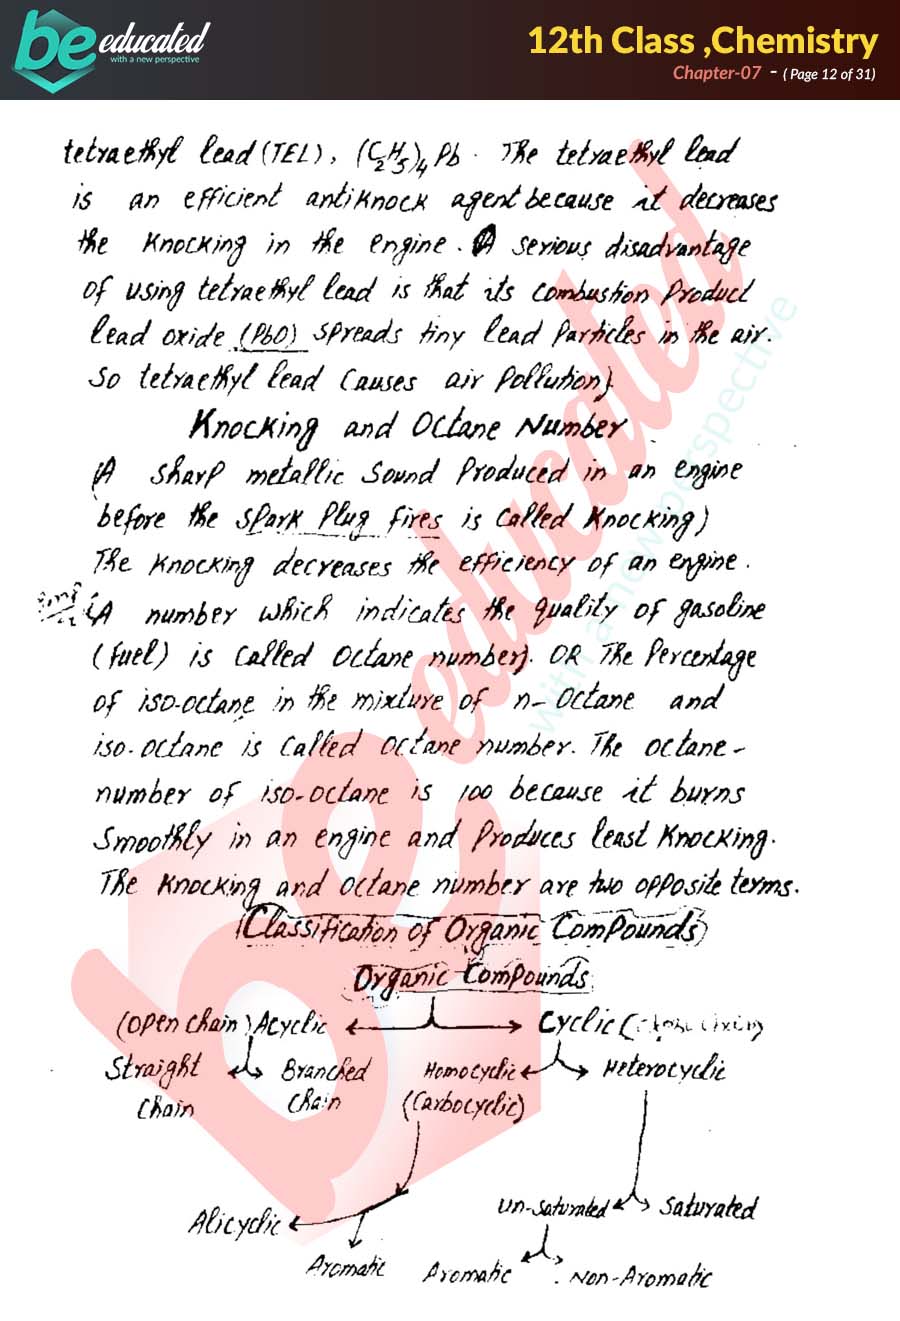 be educated
with a new perspective
12th Class ,Chemistry
Chapter-07 - ( Page 12 of 31)
tetraethyl lead (TEL), (C2H5)4 Pb. The tetraethyl lead
is an efficient antiknock agent because it decreases
the knocking in the engine. A serious disadvantage
of using tetraethyl lead is that its combustion Product
lead oxide (PbO) spreads tiny lead Particles in the air.
So tetraethyl lead causes air Pollution)
Knocking and Octane Number
(A sharp metallic sound Produced in an engine
before the spark Plug fires is called knocking)
The knocking decreases the efficiency of an engine.
(A number which indicates the quality of gasoline
(fuel) is called octane number). OR The Percentage
of iso-octane in the mixture of n-octane and
iso-octane is called octane number. The octane-
number of iso-octane is 100 because it burns
smoothly in an engine and Produces least knocking.
The knocking and octane number are two opposite terms.
(Classification of Organic Compounds)
Organic Compounds
(open chain) Acyclic Cyclic (
Straight chain Branched chain Homocyclic (Carbocyclic) Heterocyclic
un-saturated Saturated
Alicyclic
Aromatic Aromatic Non-Aromatic
be educated
with a new perspective